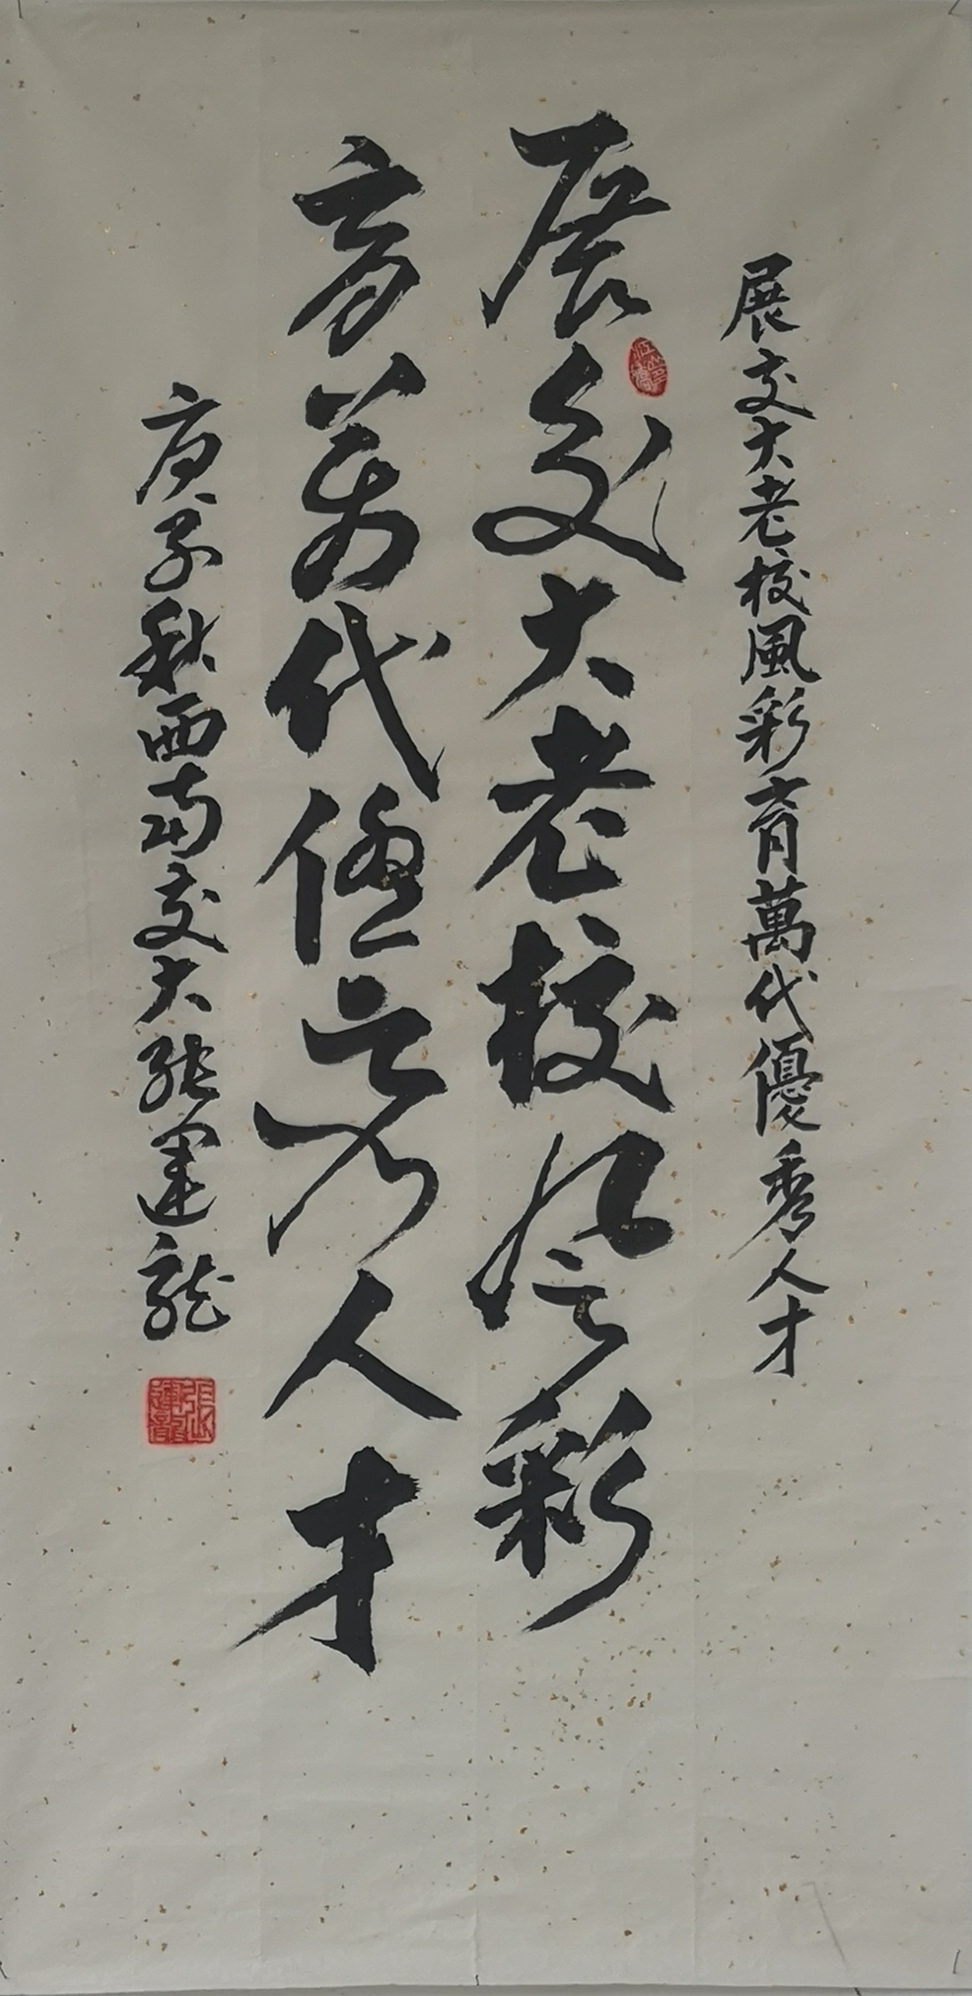 展交大老校風彩育萬代優秀人才
展交大老校风彩
育萬代優秀人才
庚子秋西南交大張運龍
張運龍